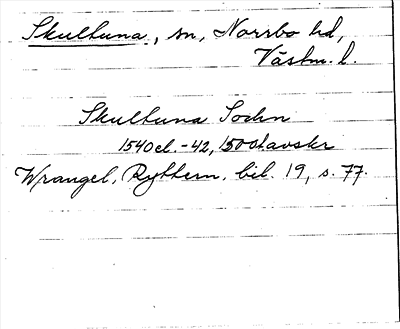 Skultuna, sn, Norrbo hd,
Västm. l.
Skultuna Sochn
1540 el. -42, 1500t avskr
Wrangel, Ryttern, bil. 19, s. 77.